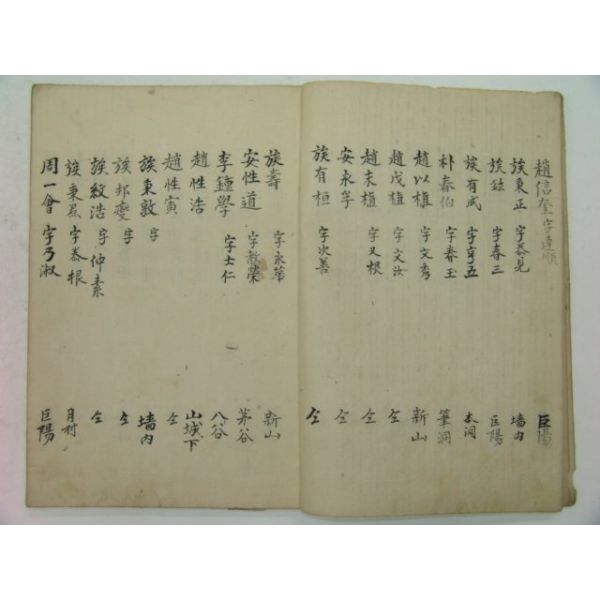 趙信奎 字達順 巨陽
族東正 字泰見 墻內
族 字春三 巨陽
族有成 字亨五 本洞
朴春伯 字春玉 筆洞
趙以植 字文秀 新山
趙戊植 字文汝 仝
趙末植 字又根 仝
安永 仝
族有桓 字次善 仝
族壽 字永華 新山
安性道 字 榮 茅谷
李鐘學 字士仁 八谷
趙性浩 山城下
趙性寅 仝
族東敦 字 墻內
族邦夔 字 仝
族紋浩 字仲素 仝
族東 字泰根 月村
周一會 字乃淑 巨陽